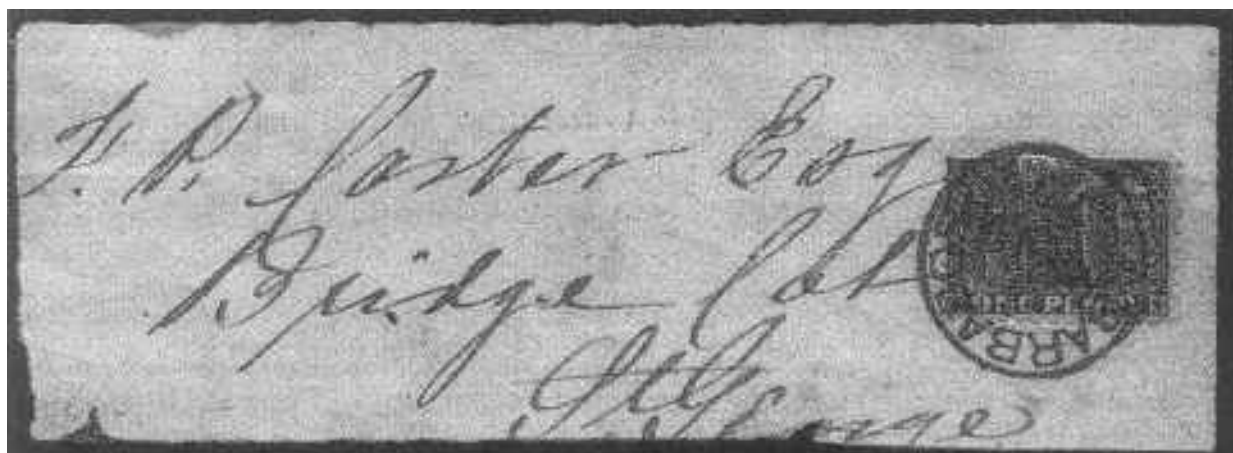 F. P. Carter Esq
Bridge Cot
St George
BARBADOS